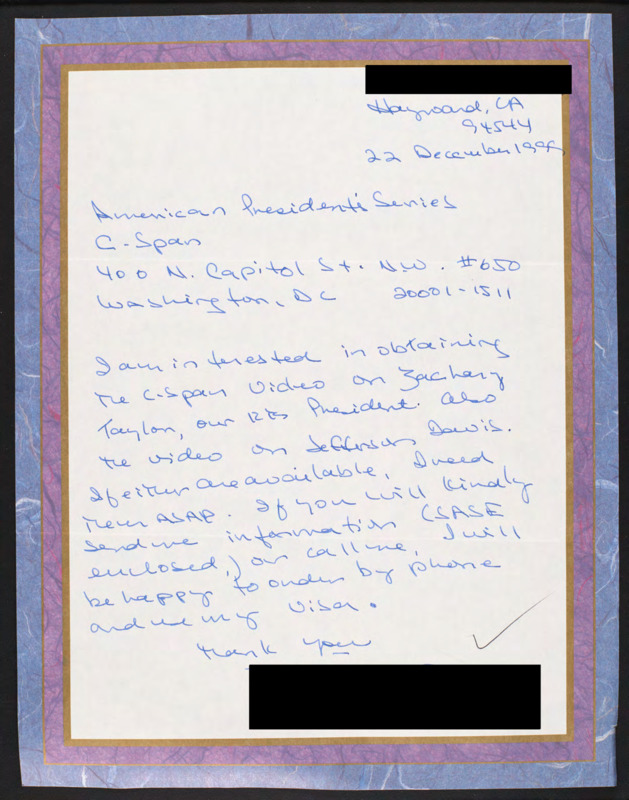 Hayward, CA
94544
22 December 1999
American Presidents' Series
C-Span
400 N. Capitol St. N.W. #650
Washington, DC 20001-1511
I am interested in obtaining
the C-Span Video on Zachery
Taylor, our 12th President. Also
the video on Jefferson Davis.
If either are available, I need
them ASAP. If you will kindly
send me information (SASE
enclosed,) or call me, I will
be happy to order by phone
and use my Visa.
Thank you